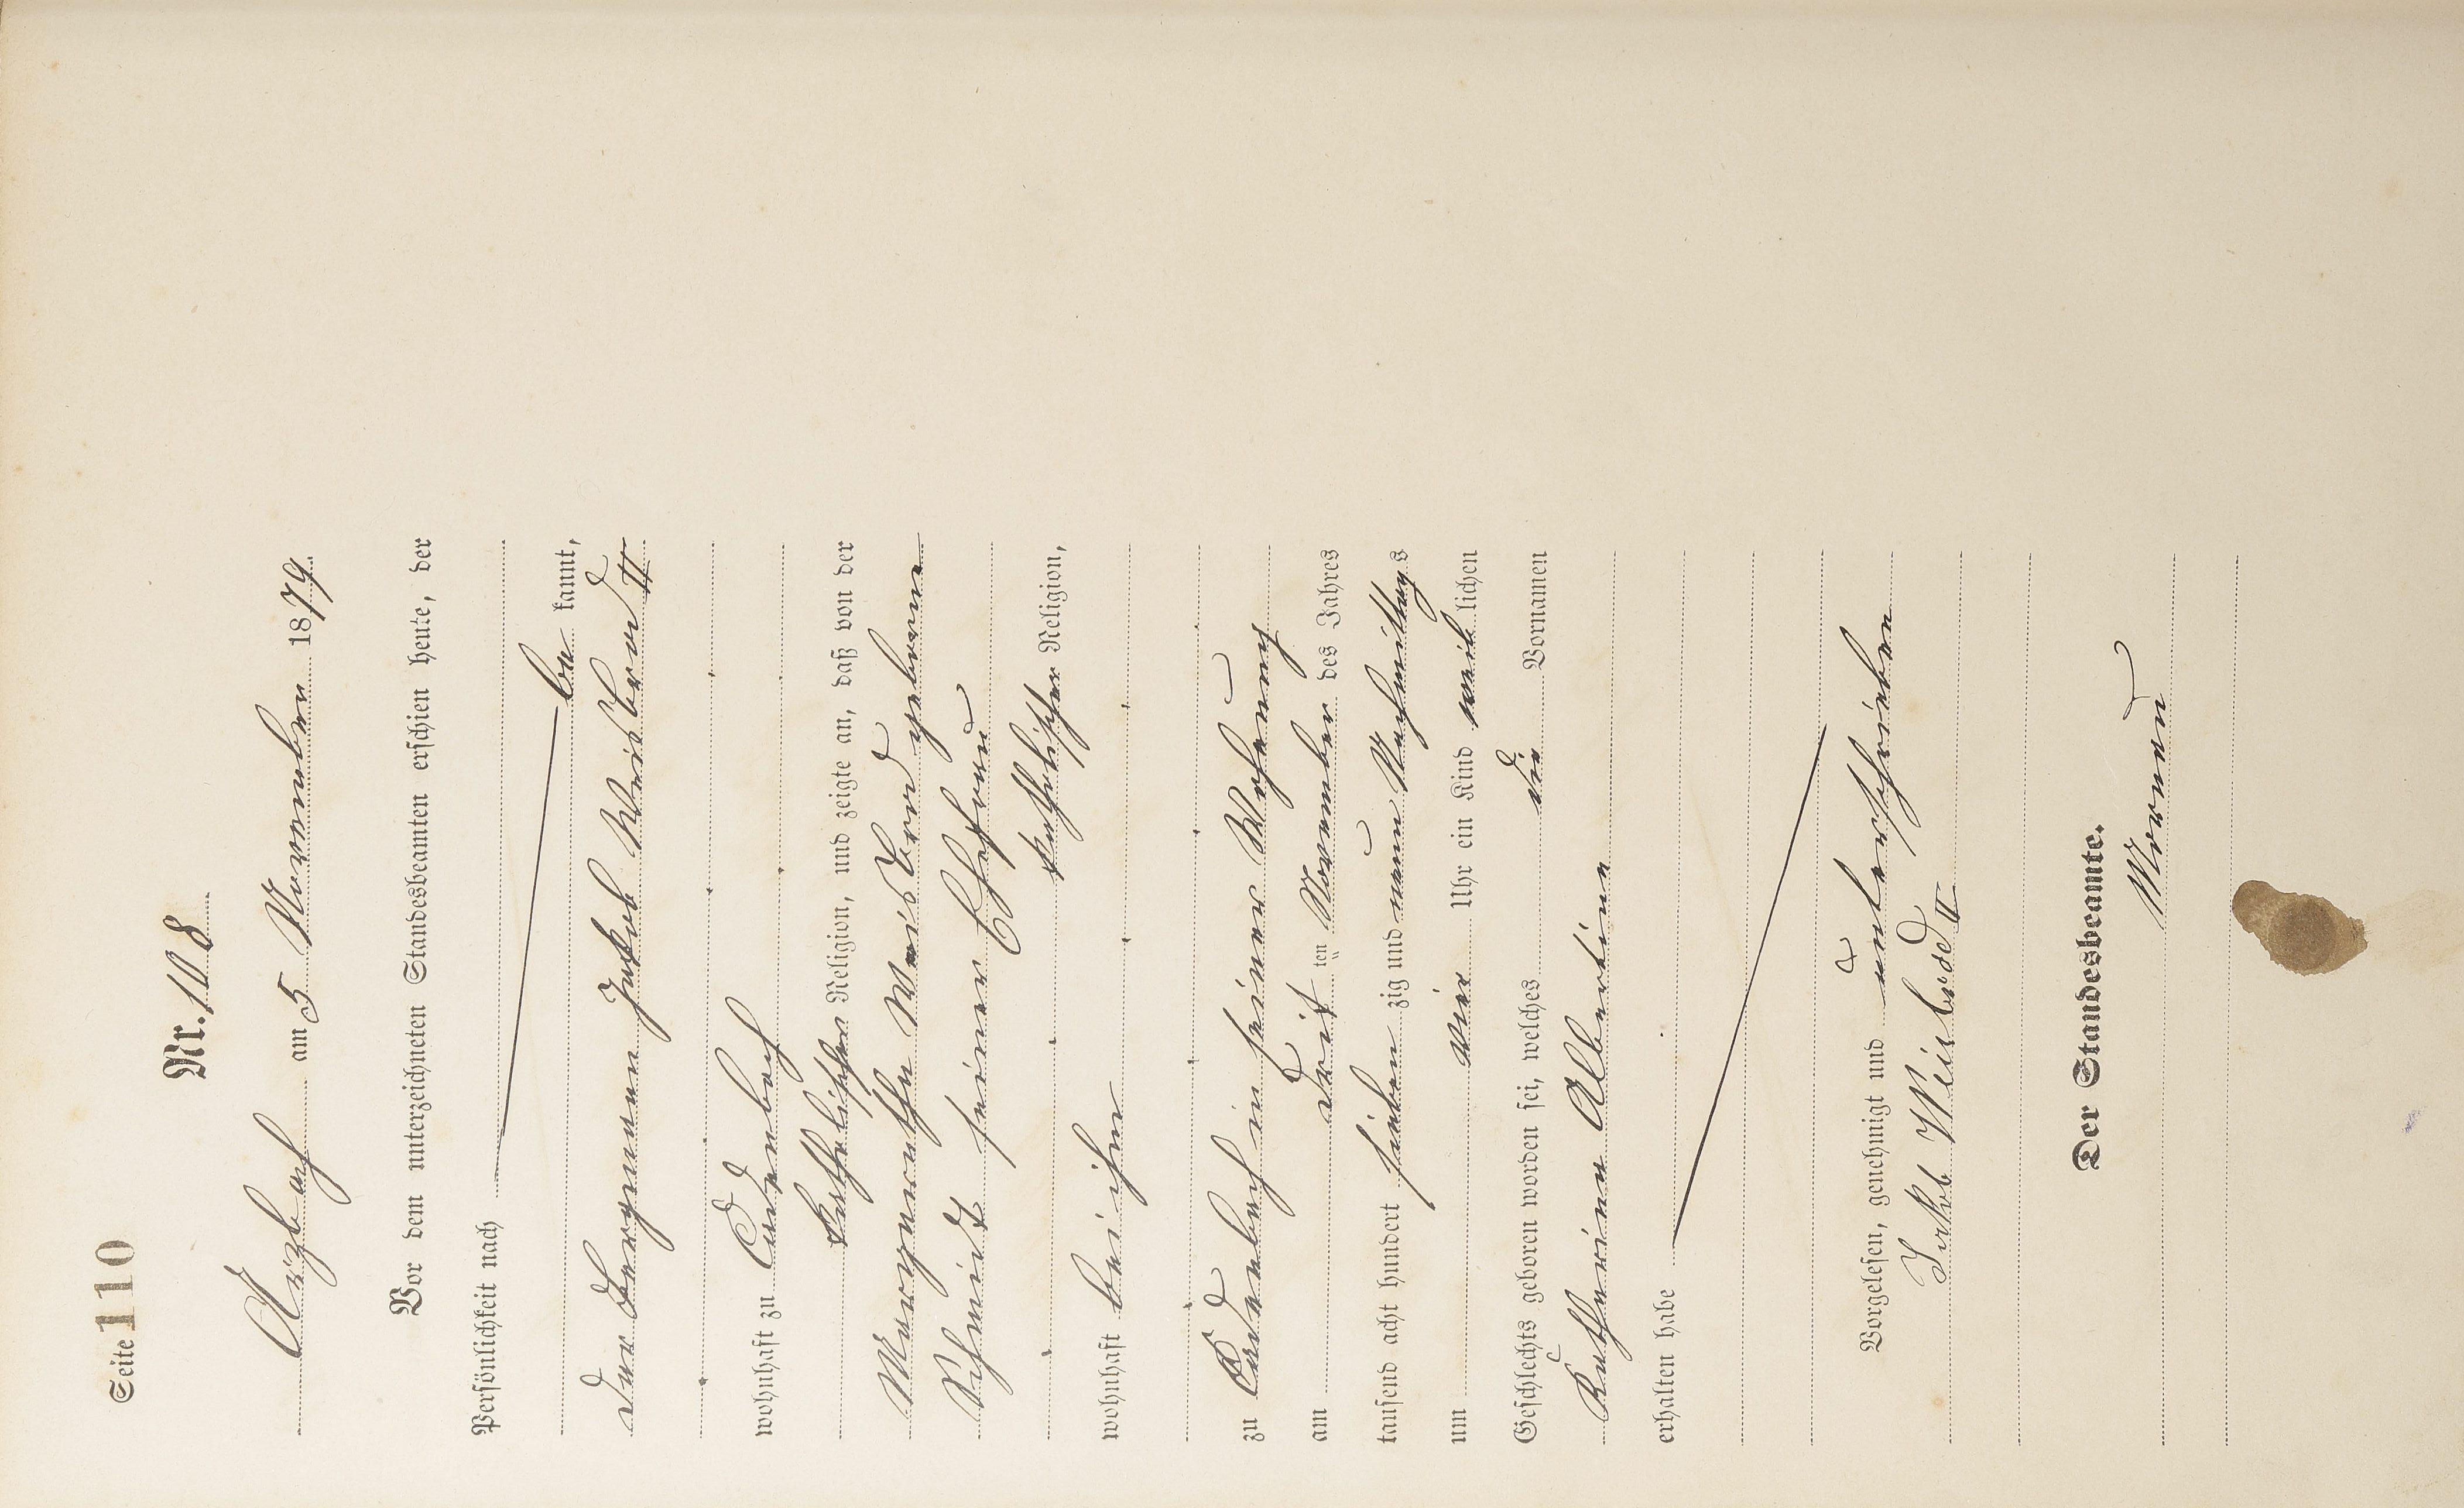 Seite 110
Nr. 108
Arzbach am 5 November 1879.
Vor dem unterzeichneten Standesbeamten erschien heute, der
Persönlichkeit nach
be kannt,
der Bergmann Jakob Weisbrod II
wohnhaft zu Cadenbach
katholischer Religion, und zeigte an, daß von der
Margaretha Weisbrod geborene
Schmidt seiner Ehefrau
katholischer Religion,
wohnhaft bei ihm
zu Cadenbach in seiner Wohnung
am drit ten November des Jahres
tausend acht hundert sieben zig und neun Nachmittags
um vier Uhr ein Kind weib lichen
Geschlechts geboren worden sei, welches die Vornamen
Katharina Albertine
erhalten habe
Vorgelesen, genehmigt und unterschrieben
Jakob Weisbrod II
Der Standesbeamte.